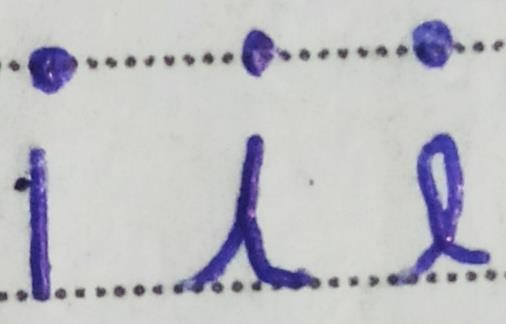 i i i